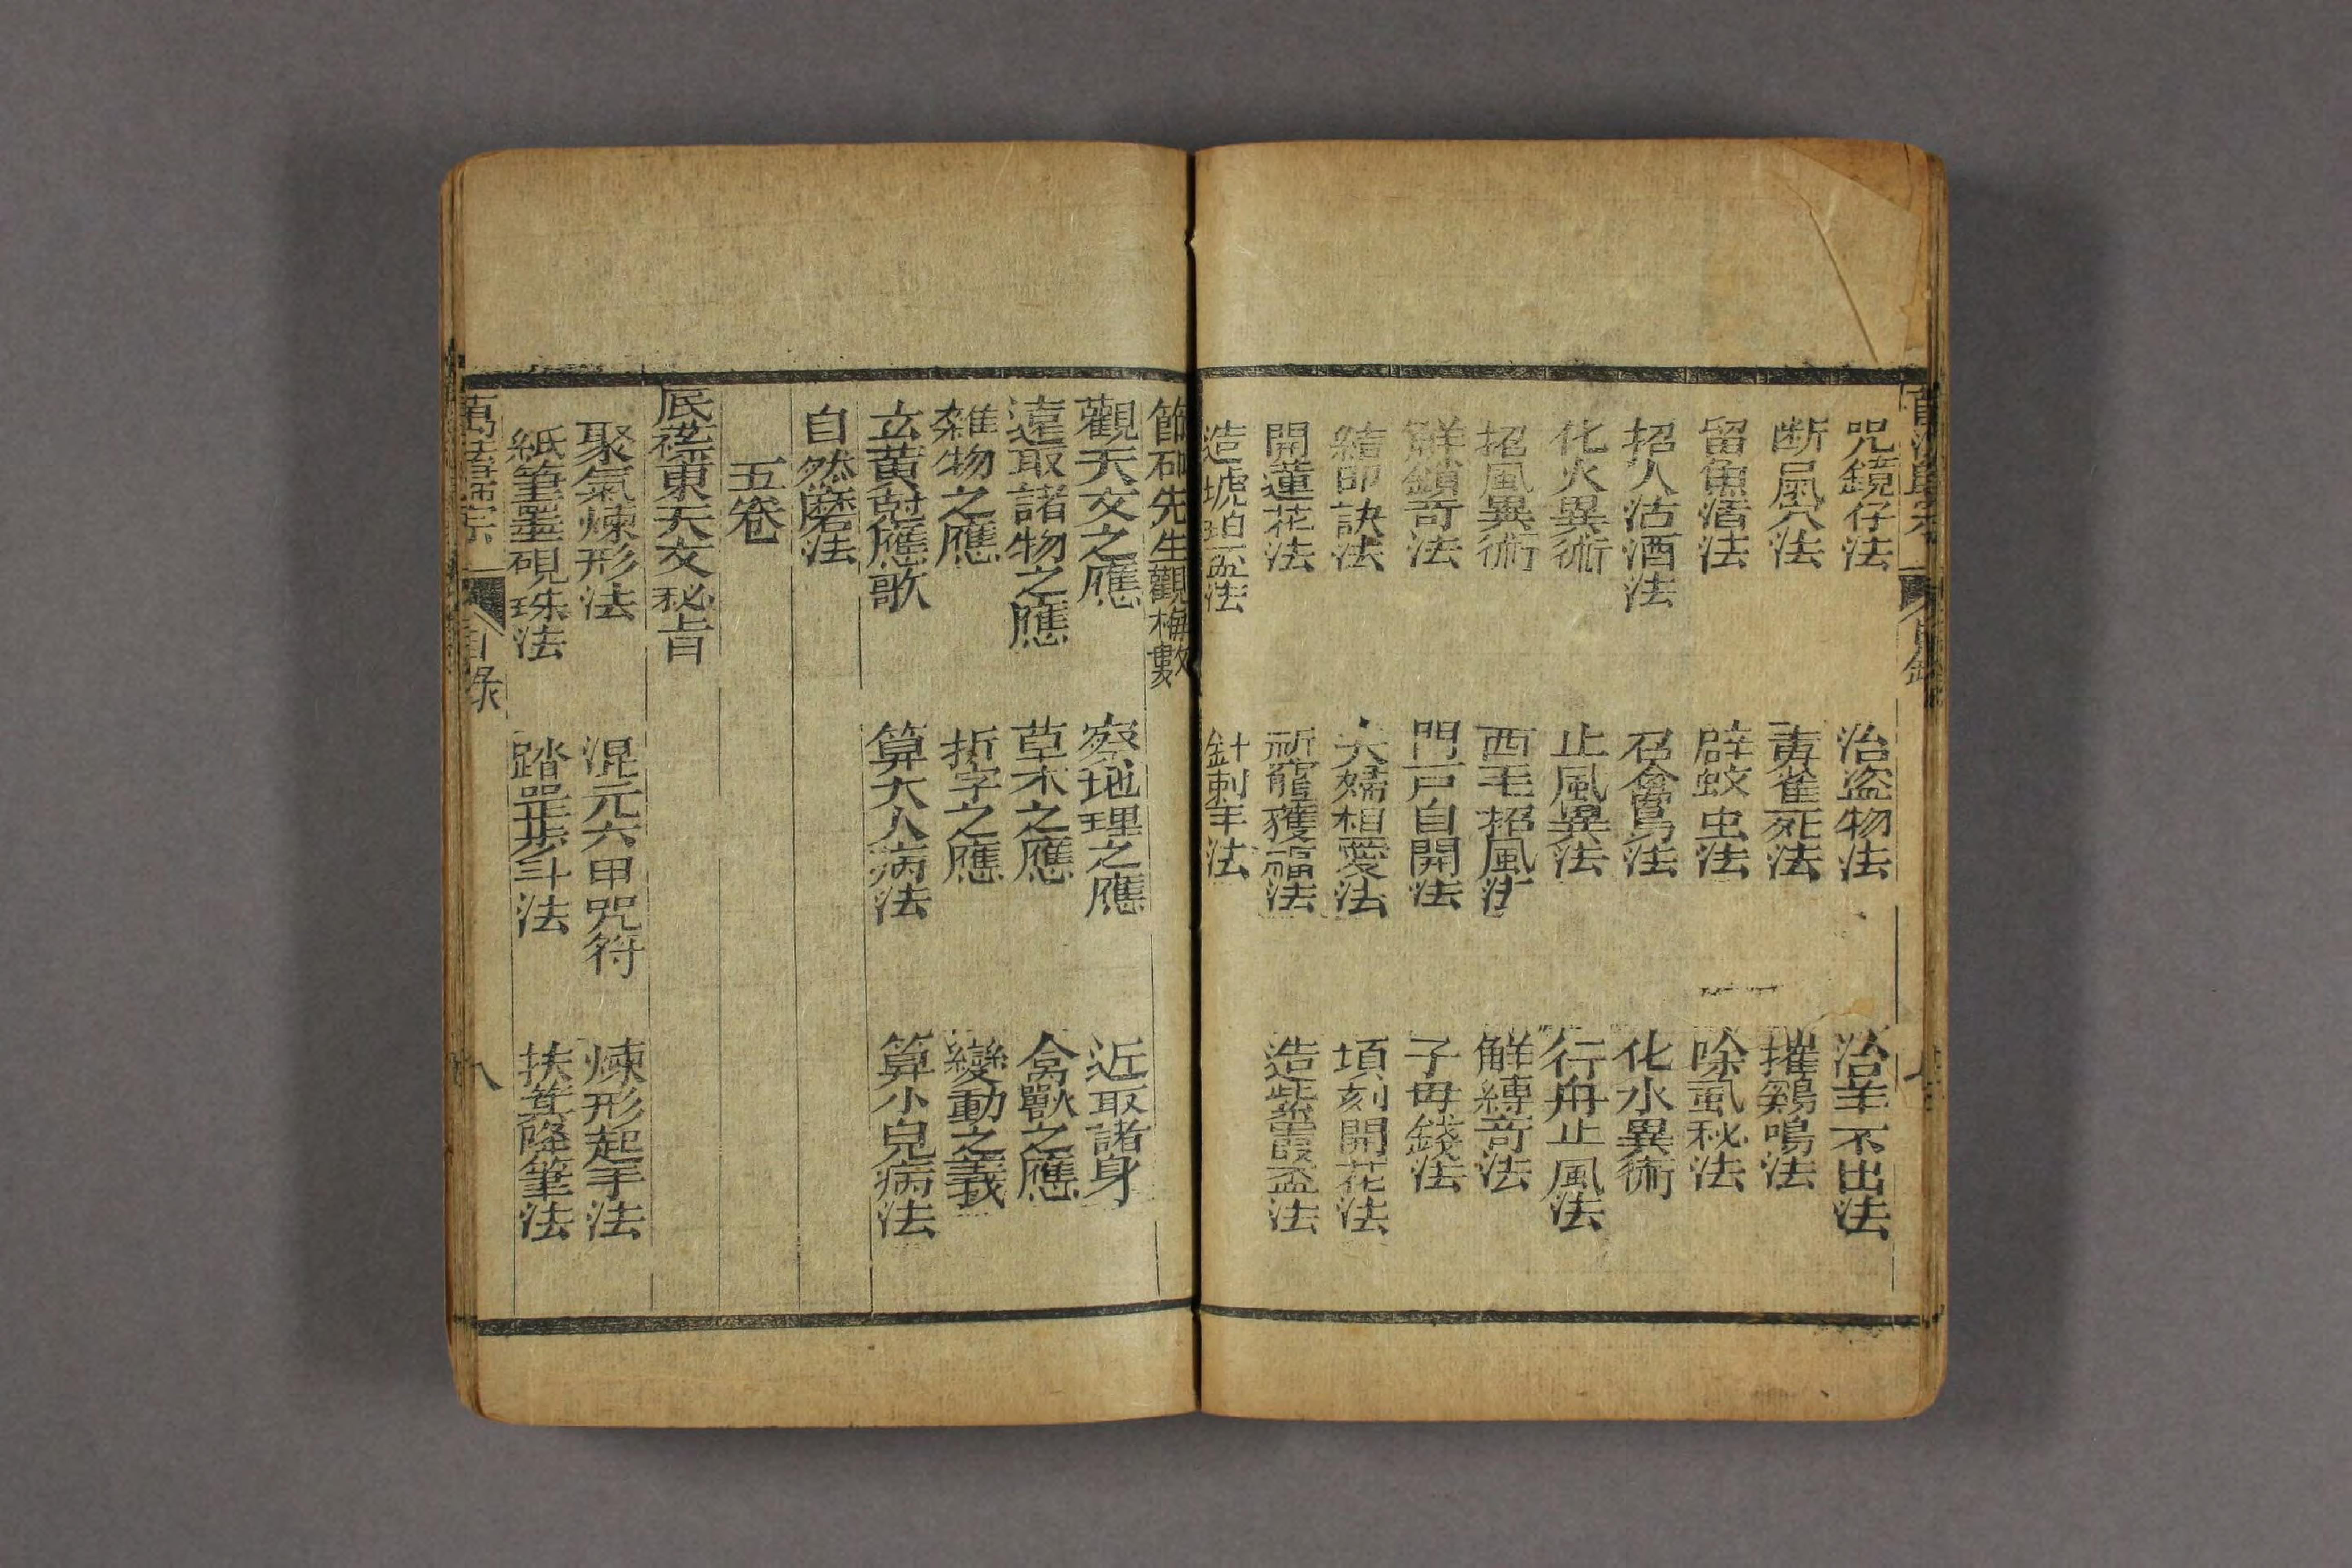 咒鏡仔法　治盗物法　治羊不出法
断鼠穴法　毒雀死法　摧鷄鳴法
留魚酒法　辟蚊虫法　除虱秘法
招人沽酒法　召禽鳥法　化水異術
化火異術　止風異法　行舟止風法
招風異術　西毛招風法　解縳竒法
觧鎖竒法　門戸自開法　子母錢法
結印訣法　夫婦相愛法　頃刻開花法
開蓮花法　祈寵獲福法　造紫霞盃法
造琥珀盃法　針刺羊法
節砌先生觀梅數
觀天文之應　察地理之應　近取諸身
遠取諸物之應　草木之應　禽獸之應
雜物之應　折字之應　變動之義
玄黄尅應歌　算大人病法　算小兒病法
自然磨法
五卷
底襟東天文秘旨
聚氣煉形法　混元六甲咒符　煉形起手法
紙筆墨硯珠法　踏罡步斗法　扶箕降筆法
萬法歸宗　目录　八